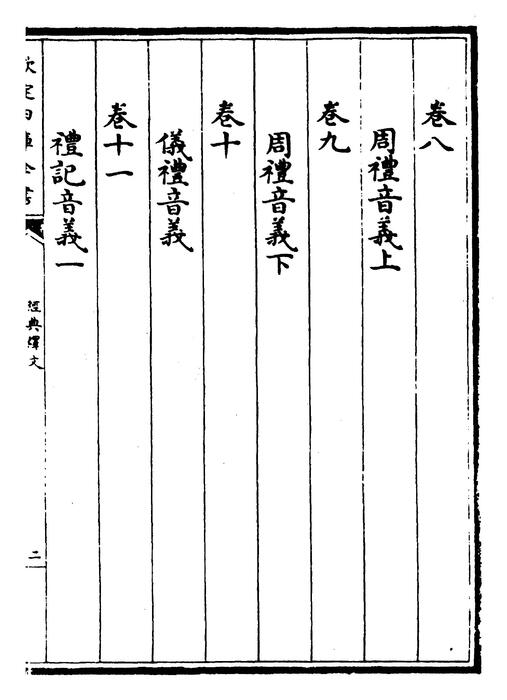 卷八
周禮音義上
卷九
周禮音義下
卷十
儀禮音義
卷十一
禮記音義一
欽定四庫全書
經典釋文
二